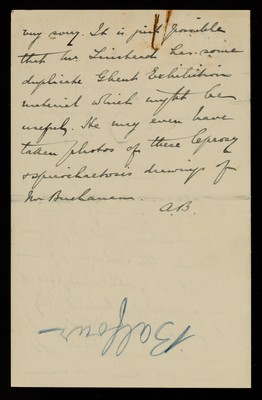 very sorry. It is just possible
that Mr. Linstead has some
duplicate Ghent Exhibition
material which might be
useful. He may even have
taken photos of these leprosy
& spirochaetosis drawings of
Mr Buchanan.
A.B.
Balfour